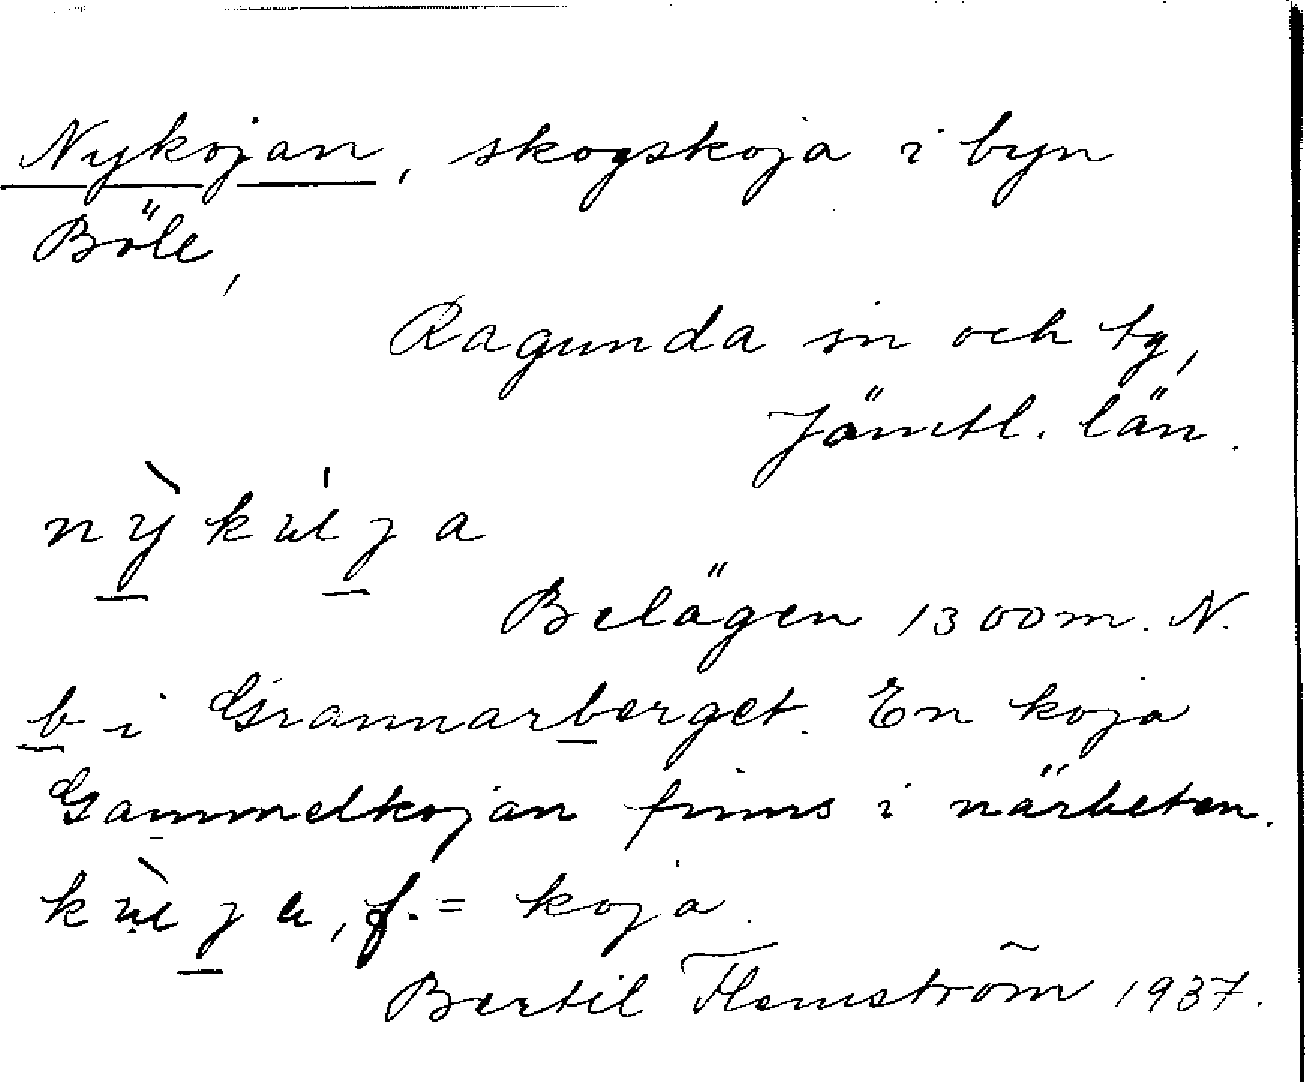 Nykojan, skogskoja i byn
Böle,
Ragunda sn och tg,
Jämtl. län.
Belägen 1300 m. N.
b i Grannarberget. En koja
Gammelkojan finns i närheten.
f. = koja.
Bertil Flemström 1937.